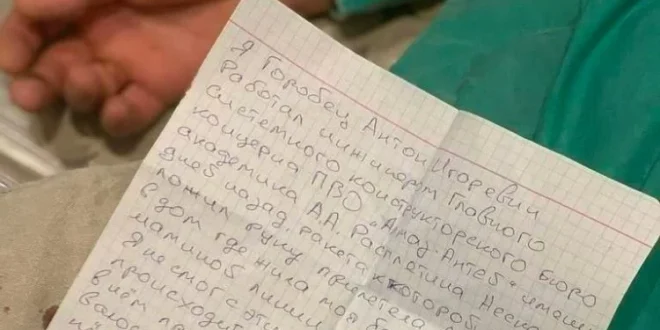 Я Горобец Антон Игоревич
Работал инжинером Главного
системного конструкторского Бюро
концерна ПВО „Алмаз-Антей" имени
академика А.А. Расплетина Неско
дней назад, ракета к которой
ложил руку прилетела
в дом где жила моя б
мамино лини
Я не смог с эти
происходит
в нём